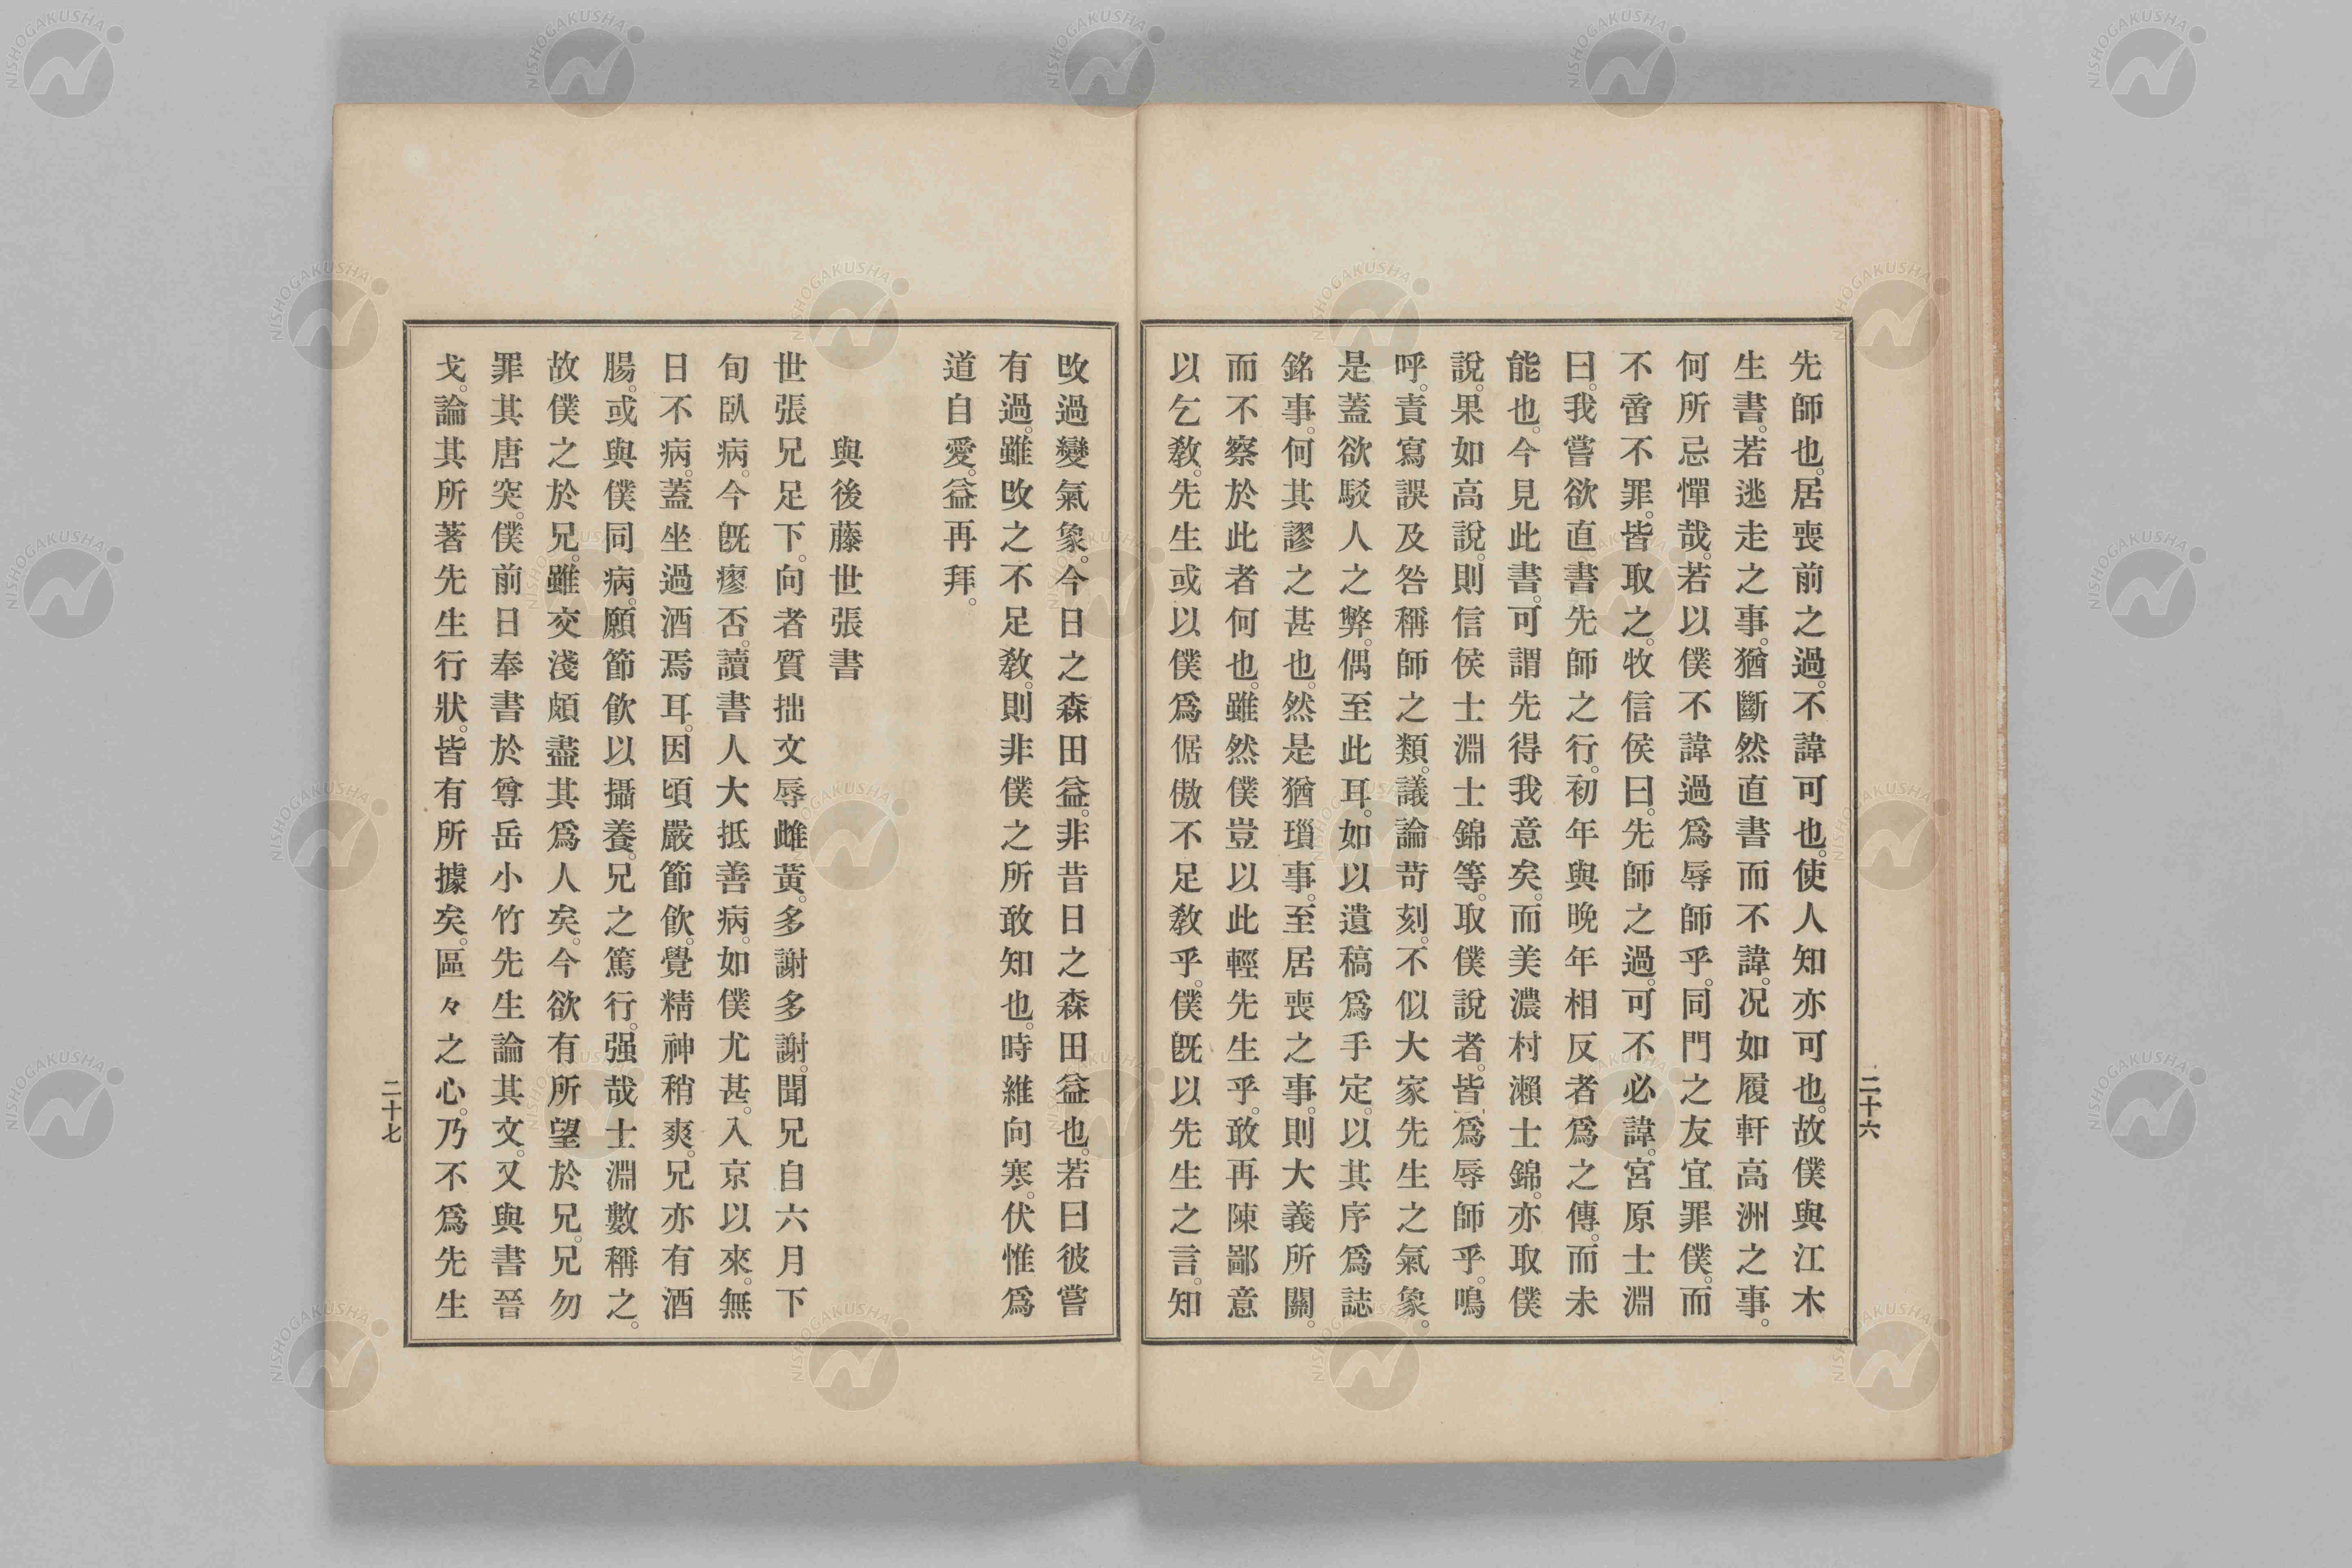 先師也。居喪前之過。不諱可也。使人知亦可也。故僕與江木
生書。若逃走之事。猶斷然直書而不諱。况如履軒高洲之事。
何所忌憚哉。若以僕不諱過爲辱師乎。同門之友宜罪僕。而
不啻不罪。皆取之。牧信侯曰。先師之過。可不必諱。宮原士淵
曰。我嘗欲直書先師之行。初年與晩年相反者爲之傳。而未
能也。今見此書。可謂先得我意矣。而美濃村瀨士錦。亦取僕
說。果如高說。則信侯士淵士錦等。取僕說者。皆爲辱師乎。鳴
呼。責寫誤及咎稱師之類。議論苛刻。不似大家先生之氣象。
是蓋欲駁人之弊。偶至此耳。如以遺稿爲手定。以其序爲誌
銘事。何其謬之甚也。然是猶瑣事。至居喪之事。則大義所關。
而不察於此者何也。雖然僕豈以此輕先生乎。敢再陳鄙意
以乞敎。先生或以僕爲倨傲不足敎乎。僕旣以先生之言。知
二十六
改過變氣象。今日之森田益。非昔日之森田益也。若曰彼嘗
有過。雖改之不足敎。則非僕之所敢知也。時維向寒。伏惟爲
道自愛。益再拜。
與後藤世張書
世張兄足下。向者質拙文辱雌黃。多謝多謝。聞兄自六月下
旬臥病。今旣瘳否。讀書人大抵善病。如僕尤甚。入京以來。無
日不病。蓋坐過酒焉耳。因頃嚴節飮。覺精神稍爽。兄亦有酒
腸。或與僕同病。願節飮以攝養。兄之篤行。强哉士淵數稱之。
故僕之於兄。雖交淺頗盡其爲人矣。今欲有所望於兄。兄勿
罪其唐突。僕前日奉書於尊岳小竹先生論其文。又與書晉
戈。論其所著先生行狀。皆有所據矣。區々之心。乃不爲先生
二十七
NISHOGAKUSHA